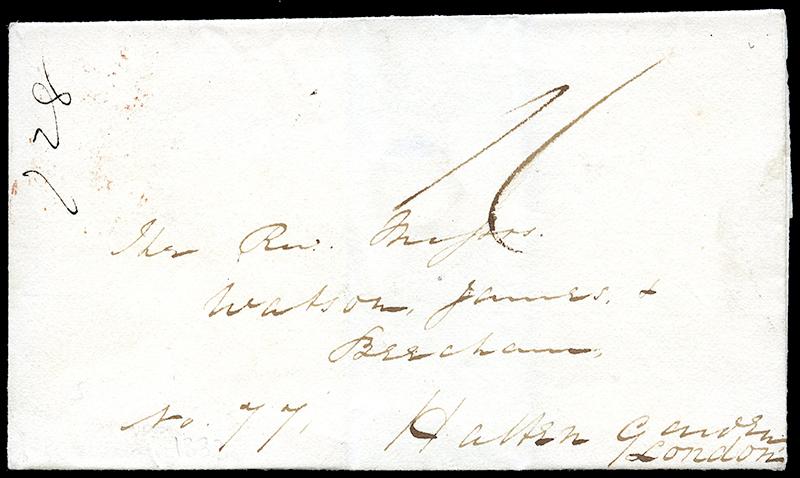 228
The Rev. Messrs.
Watson, James, &
Beecham,
No. 77, Hatten Garden
London